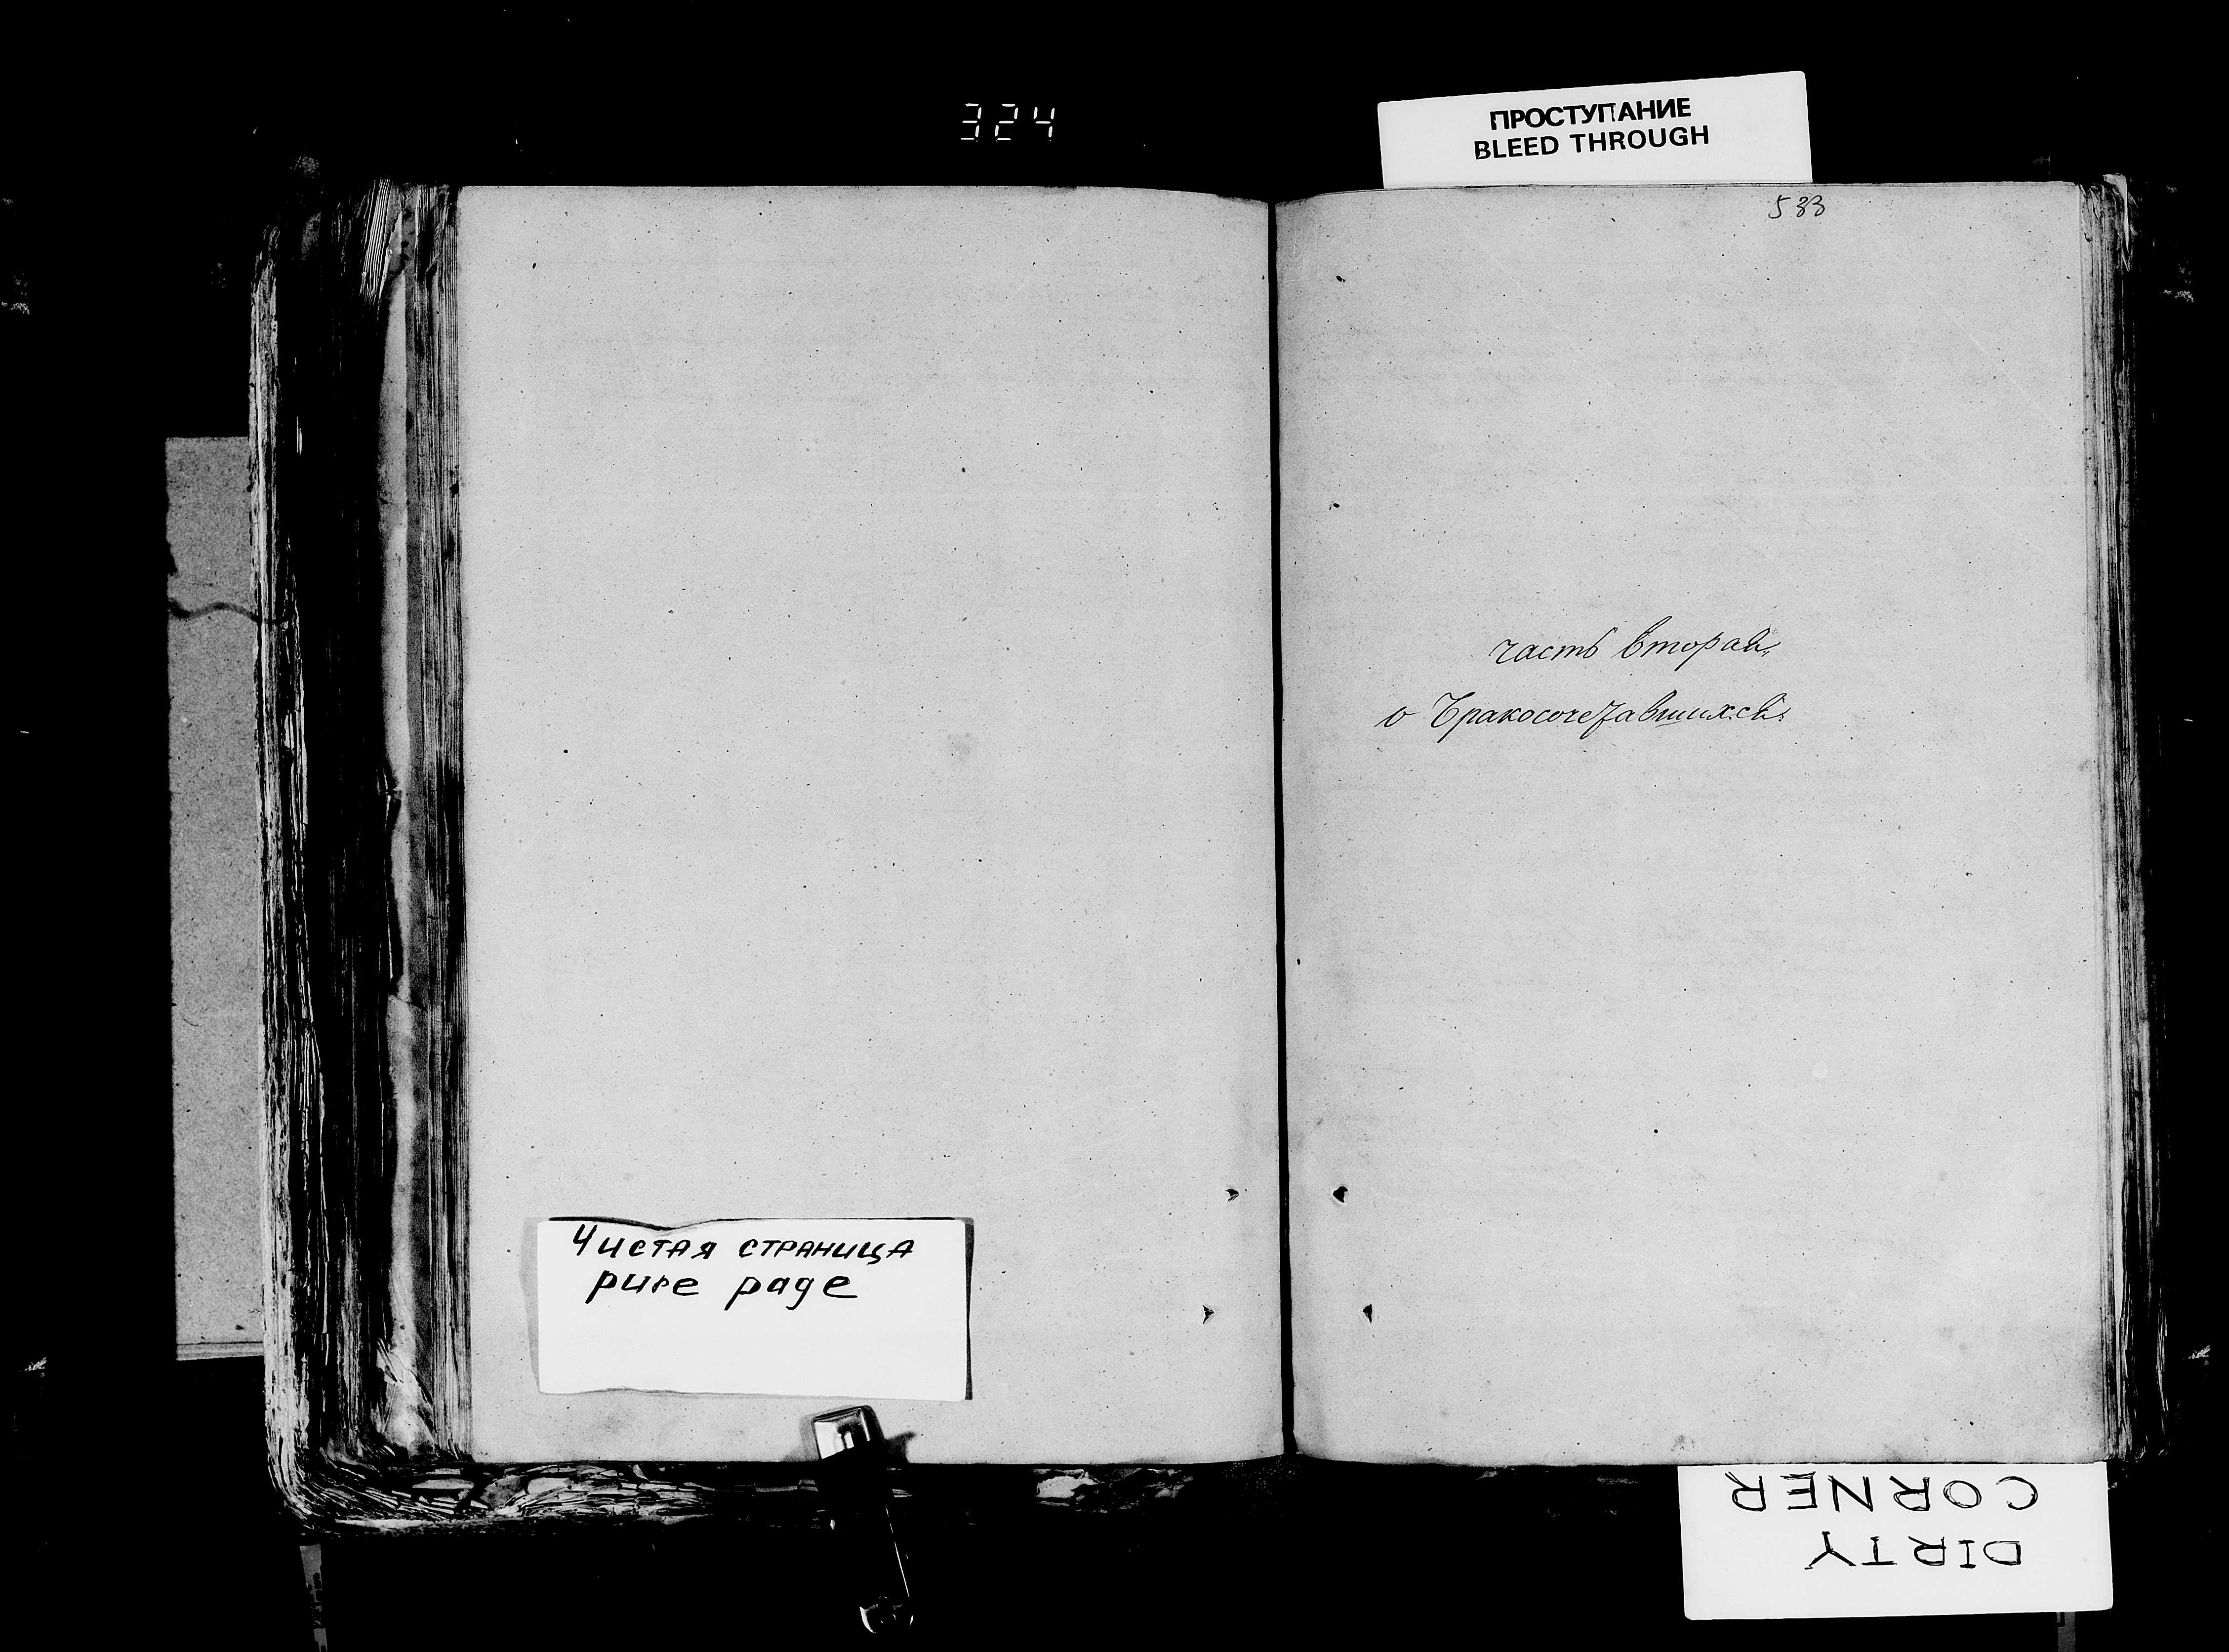 324
ПРОСТУПАНИЕ
BLEED THROUGH
533
часть вторая,
о бракосочетавшихся.
Чистая страница
pure page
DIRTY
CORNER